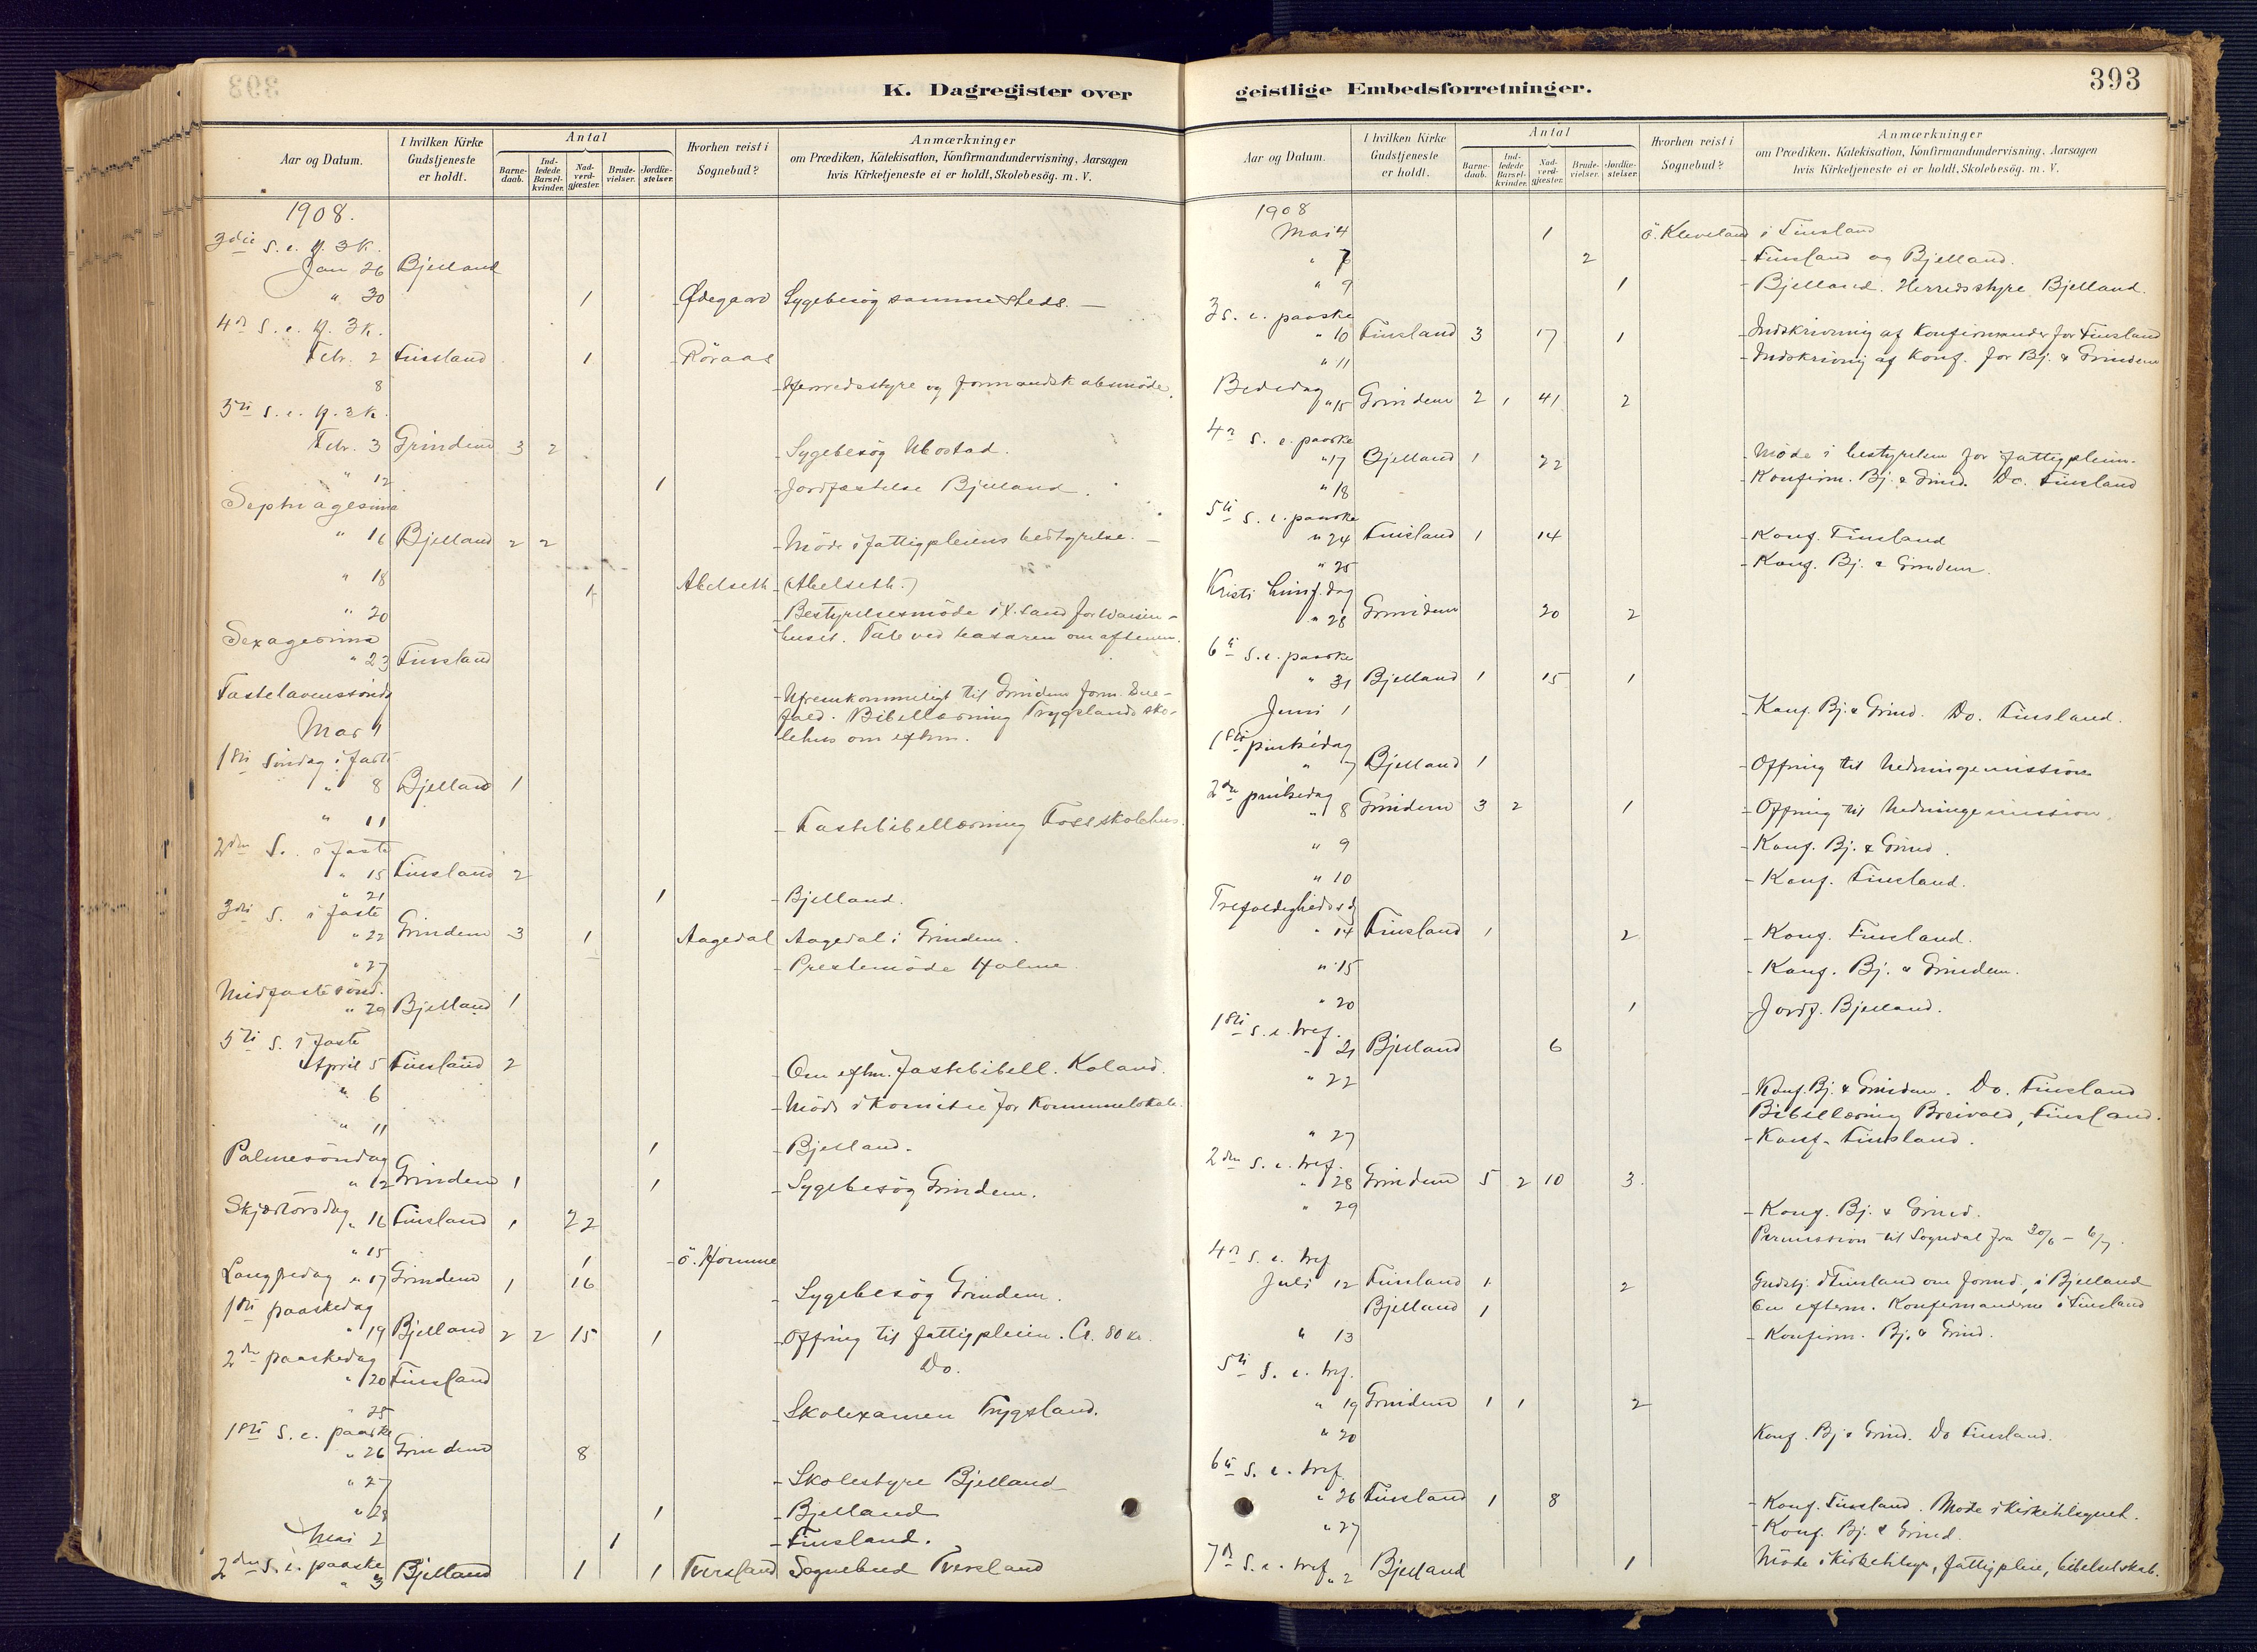 K. Dagregister over
Aar og Datum.
I hvilken Kirke Gudstjeneste er holdt.
Antal
Barnedaab.
Indledede Barselkvinder.
Nadverdgjæster.
Brudevielser.
Jordfæstelser.
Hvorhen reist i Sognebud?
Anmærkninger
om Prædiken, Katekisation, Konfirmandundervisning, Aarsagen
hvis Kirketjeneste ei er holdt, Skolebesög. m. V.
1908.
3die S. e. H. 3 K.
Jan 26 Bjelland
" 30 1 Ødegaard Sygebesög sammesteds. —
4de S. e. H. 3 K.
Febr. 2 Finsland 1 Röraas
8 Herredsstyre og formandskabsmöde.
5te S. e. H. 3 K.
Febr. 3 Grindem 3 2 Sygebesög Ubostad.
" 12 1 Jordfæstelse Bjelland.
Septuagesima
" 16 Bjelland 2 2 Möde i fattigpleiens bestyrelse. —
" 18 1 Abelseth (Abelseth.)
" 20 Bestyrelsesmöde i K.sand for Waisen-
huset. Tale ved basaren om aftenen.
Sexagesima
" 23 Finsland
Fastelavenssönd.
Mars 1 Ufremkommeligt til Grindem form. Sne-
fald. Bibellæsning Trygslands sko-
lehus om efтm.
1ste Söndag i faste
" 8 Bjelland 1
" 11 Fastebibellæsning Foss skolehus.
2den S. i faste
" 15 Finsland 2
" 21 1 Bjelland.
3die S. i faste
" 22 Grindem 3 1 Aagedal Aagedal i Grindem.
" 27 Prestemöde Holme.
Midfastesönd.
" 29 Bjelland 1
5te S. i faste
April 5 Finsland 2 Om eftm. fastebibell. Koland.
" 6 Möde i komitee for kommunelokale.
" 11 1 Bjelland.
Palmesöndag
" 12 Grindem 1 1 Sygebesög Grindem.
Skjærtorsdag " 16 Finsland 1 22
" 15 1 ö. Homme
Langfredag " 17 Grindem 1 16 Sygebesög Grindem.
1ste paaskedag
" 19 Bjelland 2 2 15 1 Offring til fattigpleien. Ca. 80 kr.
2den paaskedag Do.
" 20 Finsland
" 25 Skolexamen Trygsland.
1ste S. e. paaske
" 26 Grindem 8
" 27 Skolestyre Bjelland
" 28 1 Bjelland
Mai 2 1 Finsland.
2den S. e. paaske
" 3 Bjelland 1 1 Tversland Sognebud Tversland
geistlige Embedsforretninger.
393
Aar og Datum.
I hvilken Kirke Gudstjeneste er holdt.
Antal
Barnedaab.
Indledede Barselkvinder.
Nadverdgjæster.
Brudevielser.
Jordfæstelser.
Hvorhen reist i Sognebud?
Anmærkninger
om Prædiken, Katekisation, Konfirmandundervisning, Aarsagen
hvis Kirketjeneste ei er holdt, Skolebesög. m. V.
1908
Mai 4 1 ö. Kleveland i Finsland
" 7 2 Finsland og Bjelland.
" 9 1 Bjelland. Herredsstyre Bjelland.
3 S. e. paaske
" 10 Finsland 3 17 1 Indskrivning af Konfirmander for Finsland
" 11 Indskrivning af Konf. for Bj. & Grindem
Bededag
" 15 Grindem 2 1 41 2
4de S. e. paaske
" 17 Bjelland 1 22 Möde i bestyrelsen for fattigpleien.
" 18 Konfirm. Bj. & Grind. Do. Finsland
5te S. e. paaske
" 24 Finsland 1 14 Konf. Finsland
" 25 Konf. Bj. & Grindem.
Kristi himf.dag
" 28 Grindem 20 2
6te S. e. paaske
" 31 Bjelland 1 15 1
Juni 1 Konf. Bj. & Grind. Do. Finsland.
1ste pintsedag
" 7 Bjelland 1 Offring til hedningemission
2den pintsedag
" 8 Grindem 3 2 1 Offring til hedningemission.
" 9 Konf. Bj. & Grind.
" 10 Konf. Finsland.
Trefoldighedsd.
" 14 Finsland 1 2 Konf. Finsland.
" 15 Konf. Bj. & Grindem.
" 20 1 Jordf. Bjelland.
1ste S. e. tref.
" 21 Bjelland 6
" 22 Konf. Bj. & Grindem. Do. Finsland
Bibellæsning Breivold, Finsland.
" 27 Konf. Finsland.
2den S. e. tref.
" 28 Grindem 5 2 10 3
" 29 Konf. Bj. & Grind.
Permission til Sogndal fra 30/6 – 6/7.
4de S. e. tref
Juli 12 Finsland 1 2 Gudstj. i Finsland om formd., i Bjelland
Bjelland 1 om efterm. Konfirmanderne i Finsland
" 13 Konfirm. Bj. & Grind.
5te S. e. tref.
" 19 Grindem 1 1 2
" 20 Konf. Bj & Grind. Do Finsland.
6te S. e. tref
" 26 Finsland 1 8 Konf. Finsland. Möde i kirketilsynet.
" 27 Konf. Bj. & Grind.
7de S. e. tref
" 2 Bjelland 1 Möde i kirketilsyn, fattigpleie, bibelselskab.